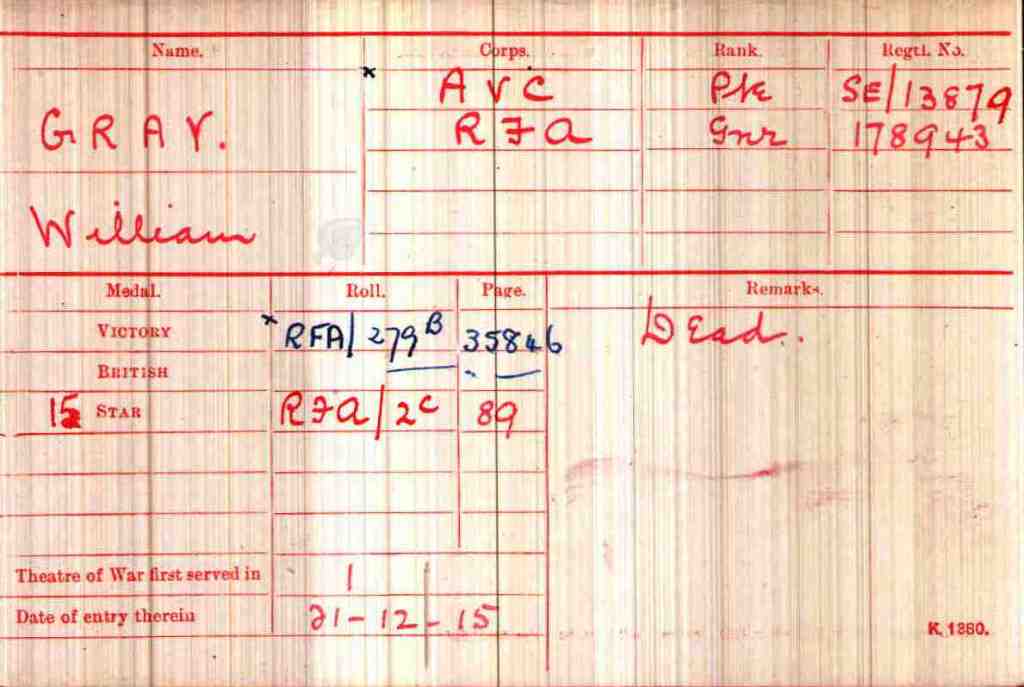 Name. Corps. Rank. Regtl. No.
x A V C Pte SE/13879
GRAY. R F A Gnr 178943
William
Medal. Roll. Page. Remarks.
VICTORY x RFA/279B 35846 Dead.
BRITISH
15 STAR RFA/2C 89
Theatre of War first served in 1
Date of entry therein 21-12-15
K. 1380.